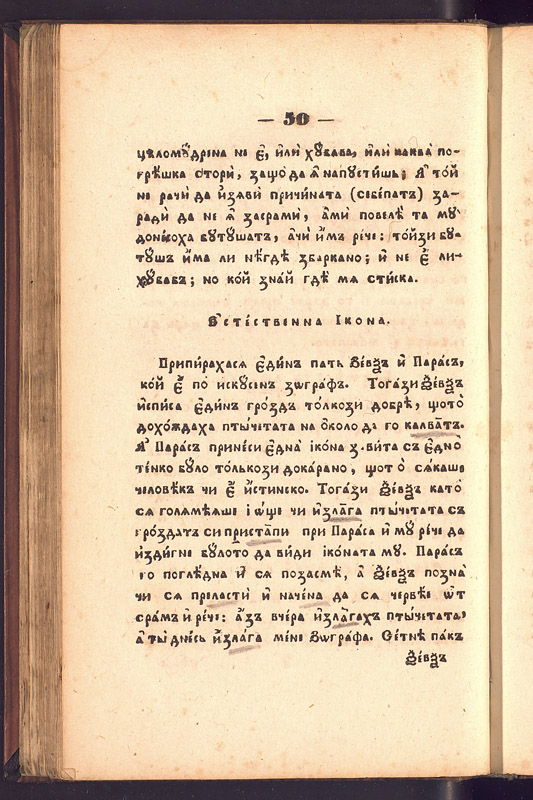 — 50 —
цѣломꙋ́дрена не є҆́, и҆лѝ хꙋ́бава, и҆лѝ каква̀ по-
грѣ́шка сторѝ, защо̀ да ѧ҆ напꙋсти́шь; А҆ то́й
не рачѝ да и҆зѧвѝ причи́ната (себепатъ) за-
радѝ да не ѧ҆ засрамѝ, а҆мѝ повелѣ̀ та мꙋ̀
донесоха бꙋтꙋшатъ, а҆чѝ и҆́мъ ре́че: то́йзи бꙋ-
тꙋшъ и҆́ма ли нѣ́гдѣ збъркано; ѝ не є҆́ ли-
хꙋ́бавъ; но ко́й зна́й гдѣ̀ мѧ сти́ска.
Е҆сте́ственна І҆ко́на.
Припи́рахасѧ є҆ди́нъ пать Зе́ѵѯъ ѝ Пара́съ,
ко́й є҆́ по̀ искꙋсенъ зѡгра́фъ. Тога́зи Зе́ѵѯъ
и҆спи́са є҆ди́нъ гро́здъ то́лкози добрѣ̀, щото̀
дохо́ждаха пты́четата на ѻ҆́коло да го калва́тъ.
А҆ Пара́съ прине́си є҆дна̀ іко́на з.ви́та съ є҆дно̀
те́нко бꙋ́ло то́лькози дока́рано, щото̀ сѧ́каше
человѣ́къ чи є҆́ и҆́стинско. Тога́зи Зе́ѵѯъ като̀
сѧ голѧмѧ́ше і҆ѡ҆́ще чи и҆зла́га пты́четата съ
гро́здатъ си приста́пи при Пара́са ѝ мꙋ ре́че да
и҆зди́гне бꙋ́лото да ви́ди іко́ната мꙋ. Пара́съ
го поглѣ́дна ѝ сѧ позасмѣ̀, а҆ Зе́ѵѯъ позна̀
чи сѧ преласти̂ ѝ наче́на да сѧ червѣ̀ ѿ
сра́мъ ѝ ре́че: а҆́зъ вче́ра и҆зла́гахъ пты́четата,
а҆ ты̀ дне́сь и҆зла́га ме́не Зѡгра́фа. Се́тнѣ па́къ
Зе́ѵѯъ